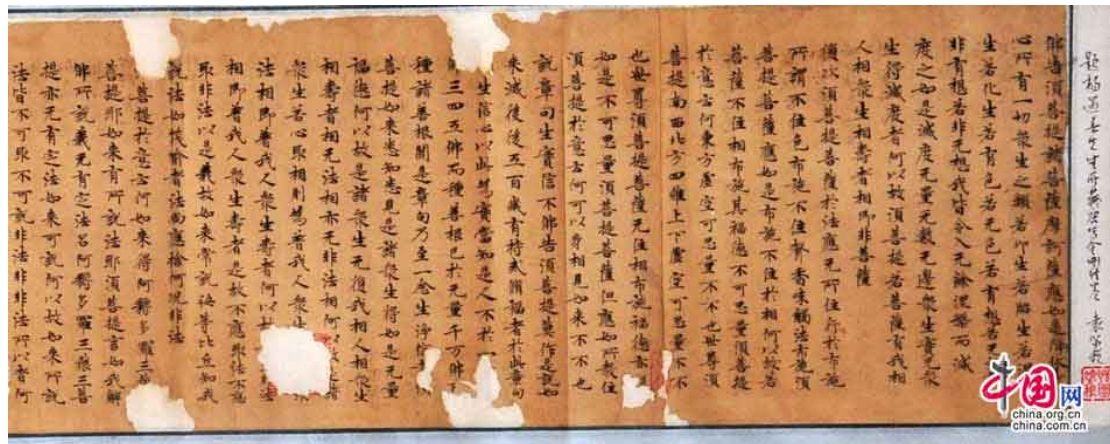 佛告須菩提諸菩薩摩訶薩應如是降伏
心所有一切衆生之類若卵生若胎生若
生若化生若有色若无色若有想若
非有想若非无想我皆令入无餘涅槃而滅
度之如是滅度无量无數无邊衆生實无衆
生得滅度者何以故須菩提若菩薩有我相
人相衆生相壽者相即非菩薩
復次須菩提菩薩於法應无所住行於布施
所謂不住色布施不住聲香味觸法布施須
菩提菩薩應如是布施不住於相何以故若
菩薩不住相布施其福德不可思量須菩提
於意云何東方虛空可思量不不也世尊須
菩提南西北方四維上下虛空可思量不不
也世尊須菩提菩薩无住相布施福德亦
如是不可思量須菩提菩薩但應如所教住
須菩提於意云何可以身相見如來不不也
說章句生實信不佛告須菩提莫作是說如
來滅後後五百歲有持戒脩福者於此章句
生信心以此為實當知是人不於一
三四五佛而種善根已於无量千万佛所
種諸善根聞是章句乃至一念生淨信
菩提如來悉知悉見是諸衆生得如是无量
福德何以故是諸衆生无復我相人相衆生
相壽者相无法相亦无非法相何以故是諸
衆生若心取相則為著我人衆生
法相即著我人衆生壽者何以故
相即著我人衆生壽者是故不應取法不應
取非法以是義故如來常說汝等比丘知我
說法如筏喻者法尚應捨何況非法
菩提於意云何如來得阿耨多羅三藐
菩提耶如來有所說法耶須菩提言如我解
佛所說義无有定法名阿耨多羅三藐三菩
提亦无有定法如來可說何以故如來所說
法皆不可取不可說非法非非法所以者何
中国网
china.org.cn
china.com.cn